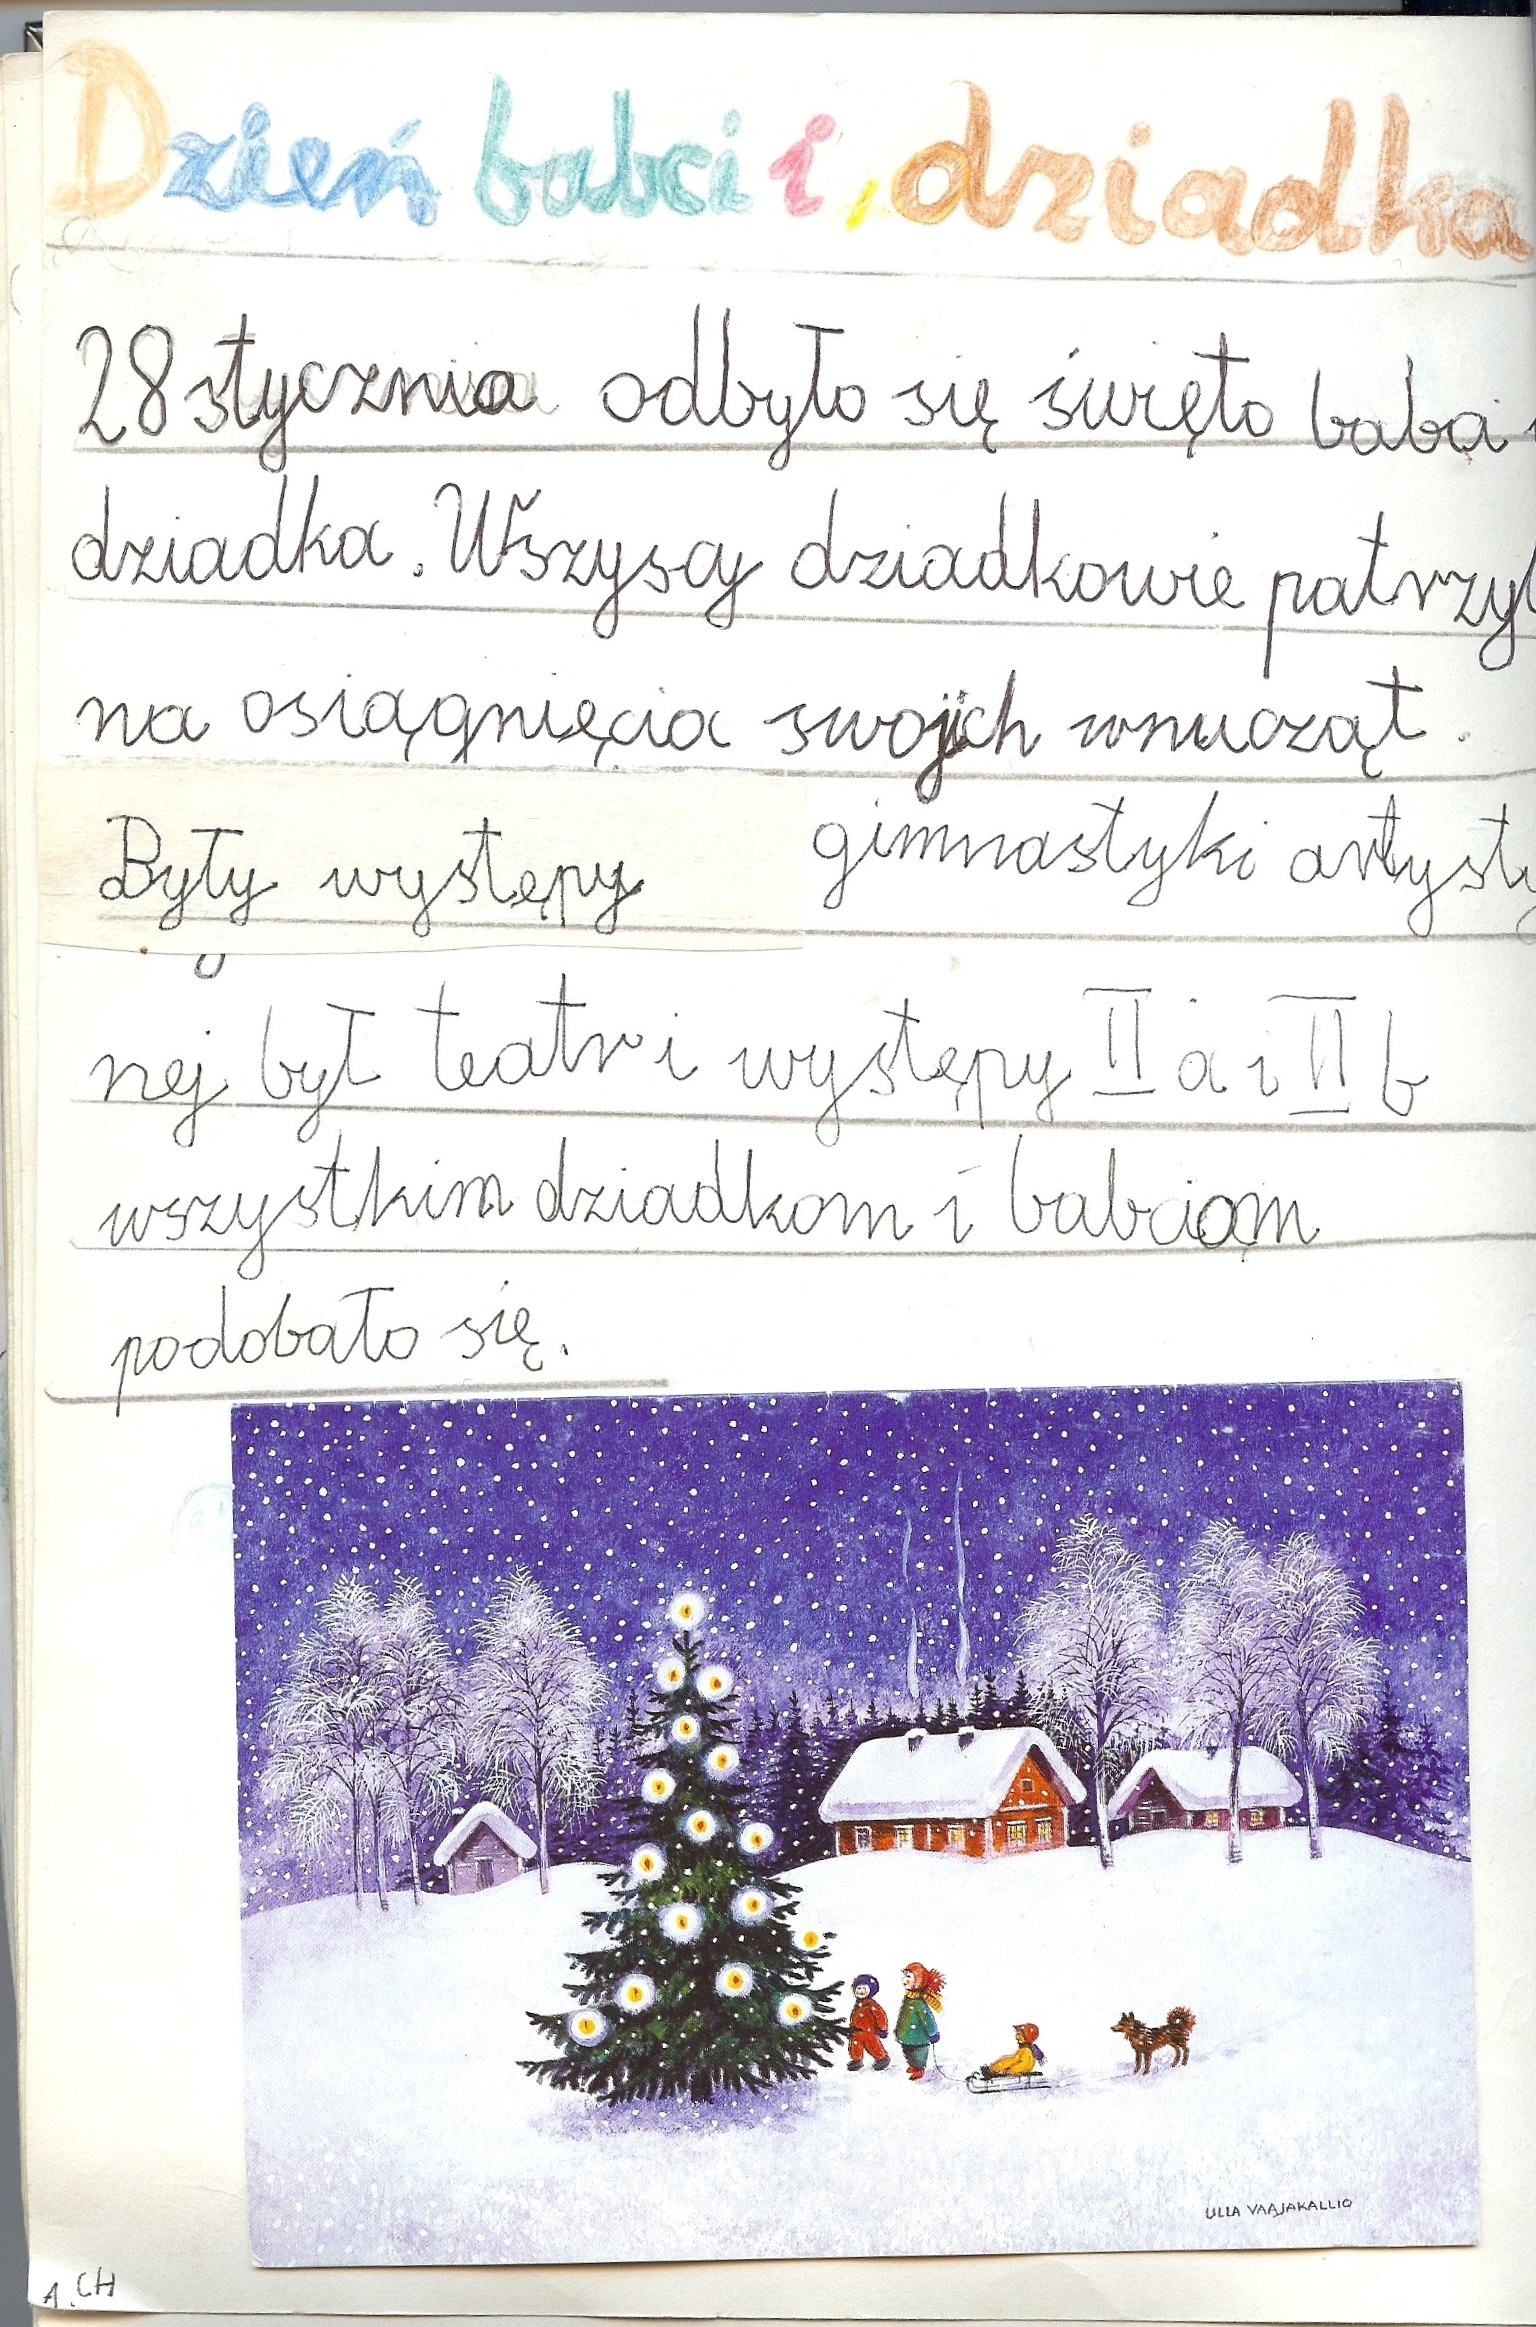 Dzień babci i dziadka
28 stycznia odbyło się święto babci i
dziadka. Wszyscy dziadkowie patrzyl
na osiągnięcia swojich wnucząt.
Były występy gimnastyki artysty
nej był teatr i występy II a i II b
wszystkim dziadkom i babciąm
podobało się.
ULLA VAAJAKALLIO
A.CH